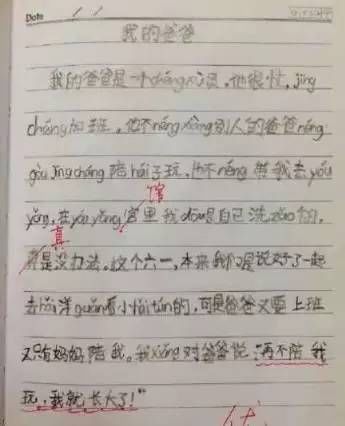 Date
我的爸爸
我的爸爸是一个chéng员,他很忙,jīng
cháng加班,他不néng xiàng别人的爸爸néng
gòu jīng cháng陪hái子玩,他不néng带我去yóu
馆
yǒng,在yóu yǒng宫里我dōu是自己洗zǎo的,
真
真是没办法。这个六一,本来我们是说好了一起
去hǎi洋guǎn看小hǎi tún的,可是爸爸又要上班
又只有妈妈陪我。我xiǎng对爸爸说:再不陪我
玩,我就长大了!"
优